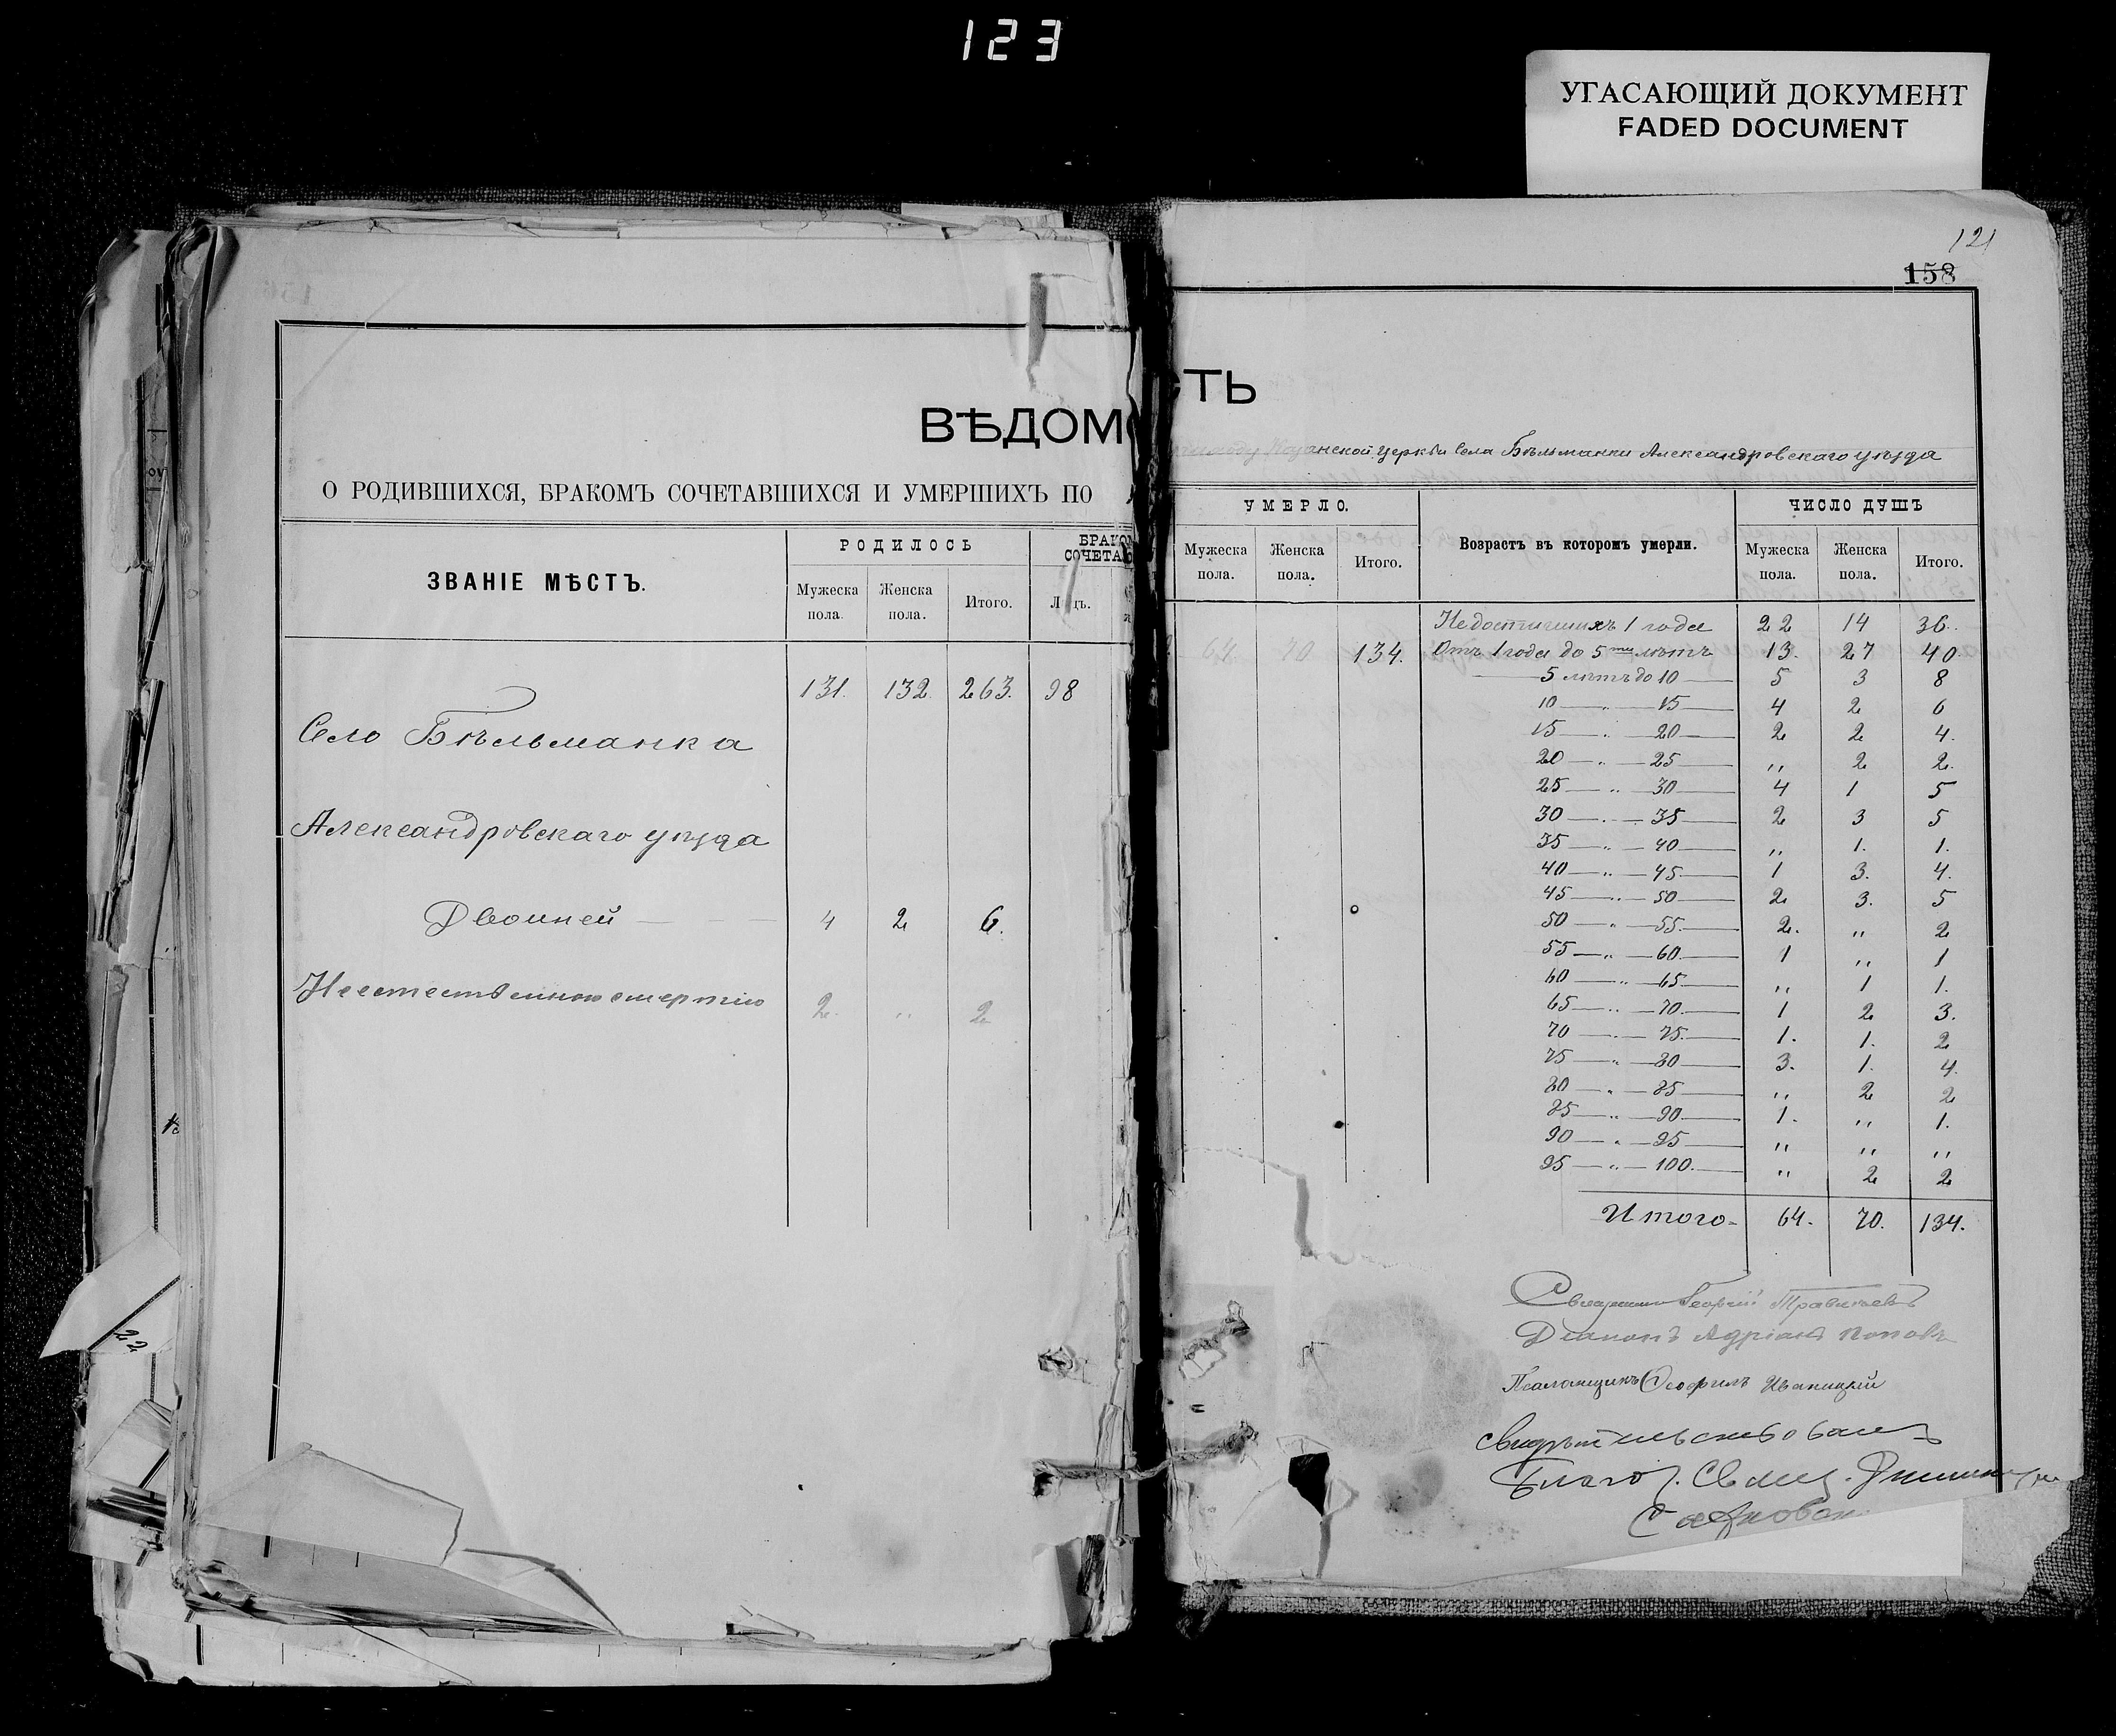 123
УГАСАЮЩИЙ ДОКУМЕНТ
FADED DOCUMENT
121
158
ВѢДОМО
СТЬ
О РОДИВШИХСЯ, БРАКОМЪ СОЧЕТАВШИХСЯ И УМЕРШИХЪ ПО
Казанской церкви села Бѣльманки Александровскаго уѣзда
ЗВАНІЕ МѢСТЪ.
РОДИЛОСЬ
Мужеска пола. Женска пола. Итого.
УМЕРЛО.
Мужеска пола. Женска пола. Итого.
Возрастъ въ которомъ умерли.
ЧИСЛО ДУШЪ
Мужеска пола. Женска пола. Итого.
131. 132. 263. 98
Село Бѣльманка
Александровскаго уѣзда
Двойней 4 2 6.
Неестественною смертію 2. " 2
64 70 134.
Недостигшихъ 1 года 22 14 36.
Отъ 1 года до 5ти лѣтъ 13. 27 40
5 лѣтъ до 10 5 3 8
10 — " — 15 4 2 6
15 — " — 20 2 2 4.
20 — " — 25 " 2 2.
25 — " — 30 4 1 5
30 — " — 35 2 3 5
35 — " — 40 " 1. 1.
40 — " — 45 1 3. 4.
45 — " — 50 2 3. 5
50 — " — 55. 2. " 2
55 — " — 60 1 " 1
60 — " — 65 " 1 1.
65 — " — 70 1 2 3.
70 — " — 75. 1. 1. 2
75 — " — 80 3. 1. 4.
80 — " — 85 " 2 2
85 — " — 90 1. " 1.
90 — " — 95 " " "
95 — " — 100. " 2 2
Итого 64. 70. 134.
Священникъ Георгій
Діаконъ Адріанъ Поповъ
Псаломщикъ Ѳеофилъ Иваницкій
Свидѣтельствовалъ
Благоч. Свящ.
22